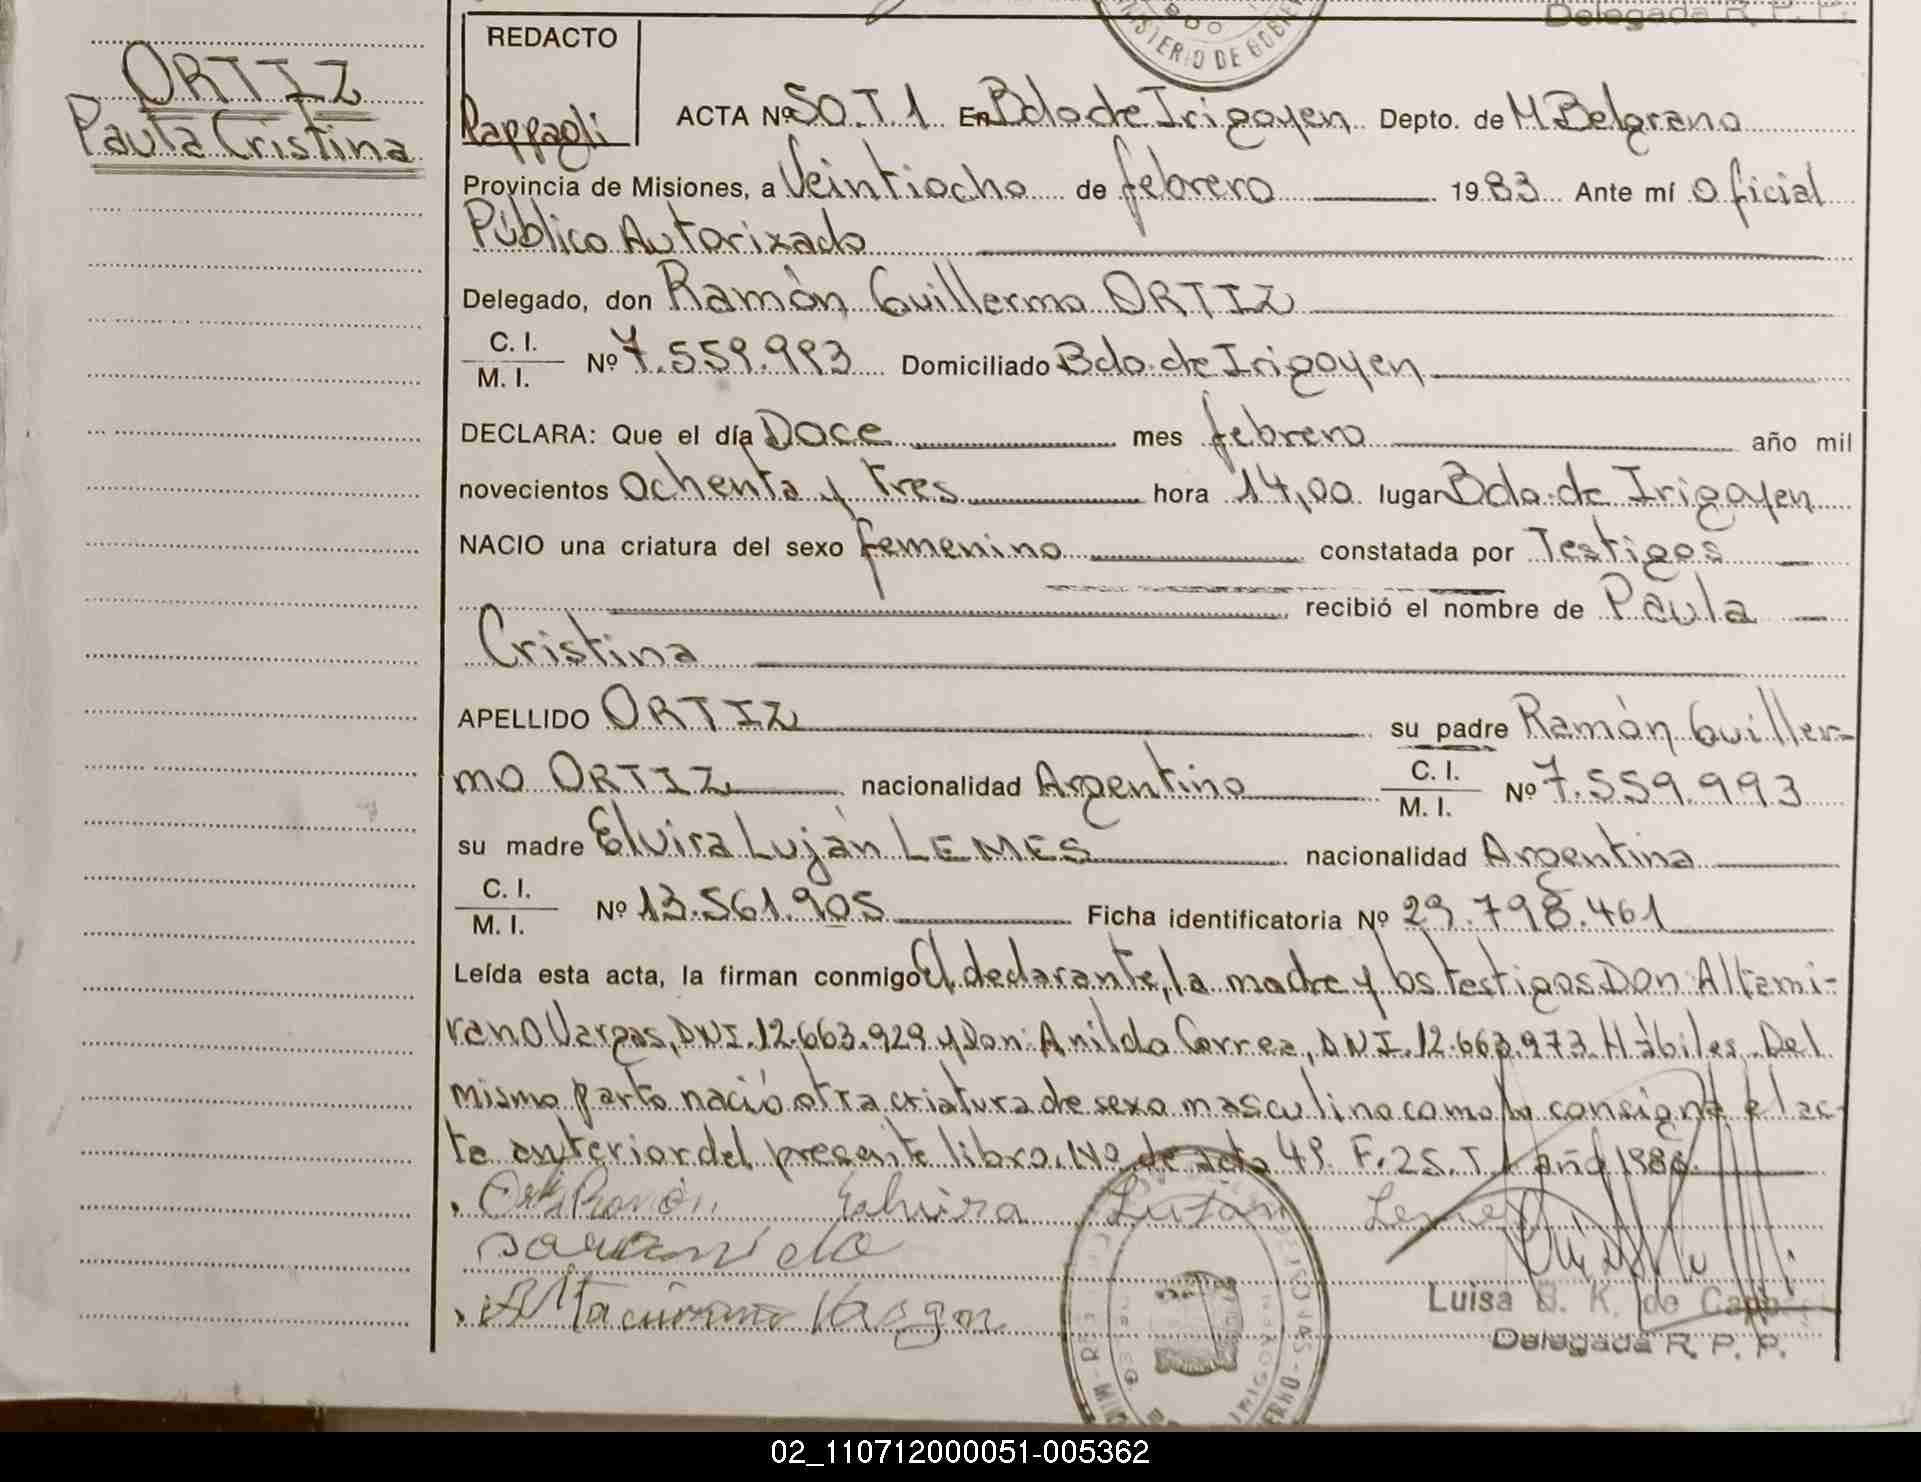 Delegada R. P. P.
MINISTERIO DE GOBIE
ORTIZ
Paula Cristina
REDACTO
Rappagli
ACTA Nº 50.T 1 En Bdo de Irigoyen Depto. de M Belgrano
Provincia de Misiones, a Veintiocho de febrero 1983 Ante mí Oficial
Público Autorizado
Delegado, don Ramón Guillermo ORTIZ
C. I.
M. I. Nº 7.559.993 Domiciliado Bdo. de Irigoyen
DECLARA: Que el día Doce mes febrero año mil
novecientos Ochenta y tres hora 14,00 lugar Bdo. de Irigoyen
NACIO una criatura del sexo femenino constatada por Testigos
recibió el nombre de Paula
Cristina
APELLIDO ORTIZ su padre Ramón Guiller-
mo ORTIZ nacionalidad Argentino C. I. M. I. Nº 7.559.993
su madre Elvira Luján LEMES nacionalidad Argentina
C. I.
M. I. Nº 13.561.905 Ficha identificatoria Nº 29.798.461
Leída esta acta, la firman conmigo El declarante, la madre y los testigos Don: Altami-
rano Vargas, DNI. 12.663.929 y Don: Anildo Correa, DNI. 12.663.973 Hábiles. Del
mismo parto nació otra criatura de sexo masculino como lo consigna el ac-
ta anterior del presente libro. Nº de acta 49. F. 25. T 1 año
Ortiz Ramón Elvira Luján Lemes
Altamirano Vargas
Luisa K. de
Delegada R. P. P.
02_110712000051-005362